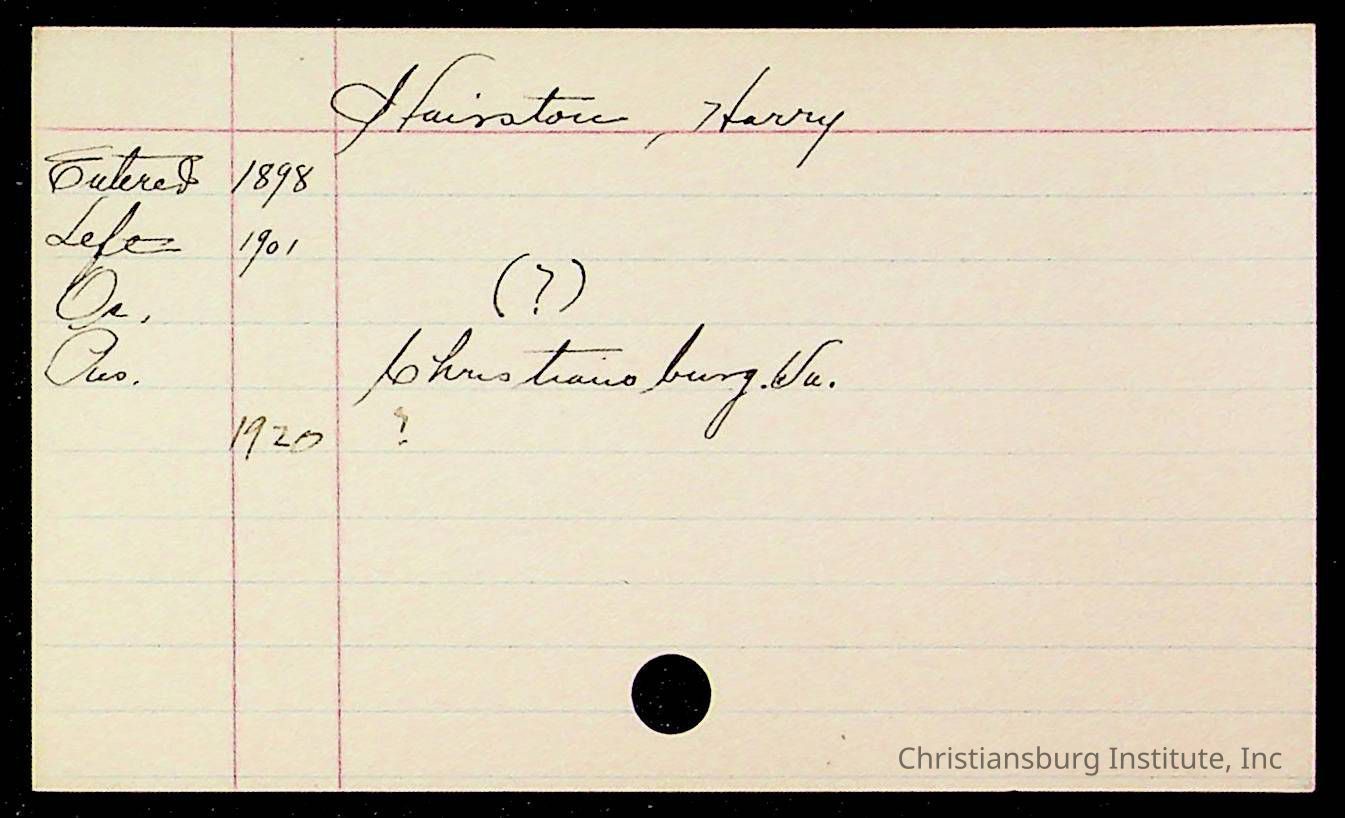 Hairston, Harry
Entered 1898
Left 1901
Oc. (?)
Res. Christiansburg. Va.
1920 ?
Christiansburg Institute, Inc